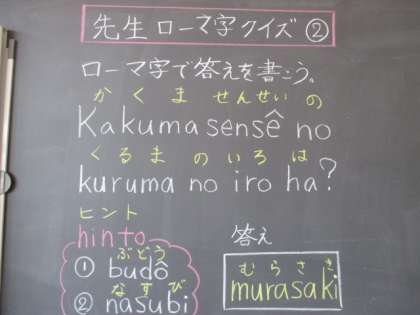 先生ローマ字クイズ②
ローマ字で答えを書こう。
かくませんせいの
Kakuma sensê no
くるまのいろは
kuruma no iro ha?
ヒント
hinto
ぶどう
① budô
なすび
② nasubi
答え
むらさき
murasaki